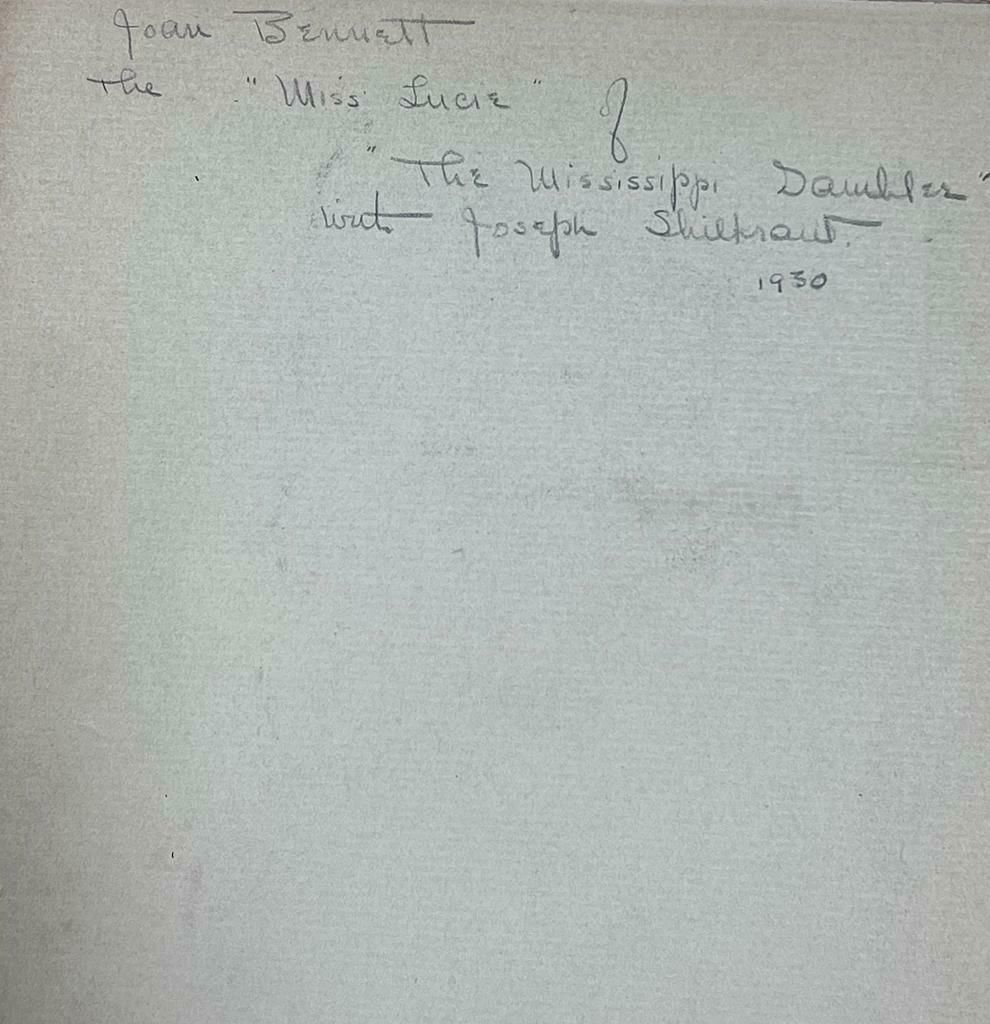 Joan Bennett
The "Miss Lucie" of
"The Mississippi Gambler"
with Joseph Shilkraut.
1930